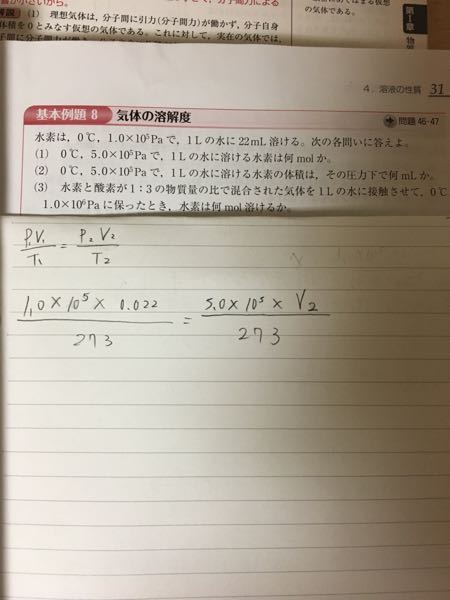 解説 (1) 理想気体は，分子間に引力(分子間力)が働かず，分子自身
体積を0とみなす仮想の気体である。これに対して，実在の気体では，
の気体である。
第Ⅰ章
4．溶液の性質 31
基本例題8 気体の溶解度
問題 46・47
水素は，0℃，1.0×10⁵Paで，1Lの水に22mL溶ける。次の各問いに答えよ。
(1) 0℃，5.0×10⁵Paで，1Lの水に溶ける水素は何molか。
(2) 0℃，5.0×10⁵Paで，1Lの水に溶ける水素の体積は，その圧力下で何mLか。
(3) 水素と酸素が1：3の物質量の比で混合された気体を1Lの水に接触させて，0℃
1.0×10⁶Paに保ったとき，水素は何mol溶けるか。
P₁V₁/T₁ = P₂V₂/T₂
1.0×10⁵×0.022/273 = 5.0×10⁵×V₂/273